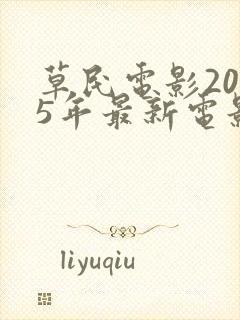 草民电影20
5年最新电影
liyuqiu